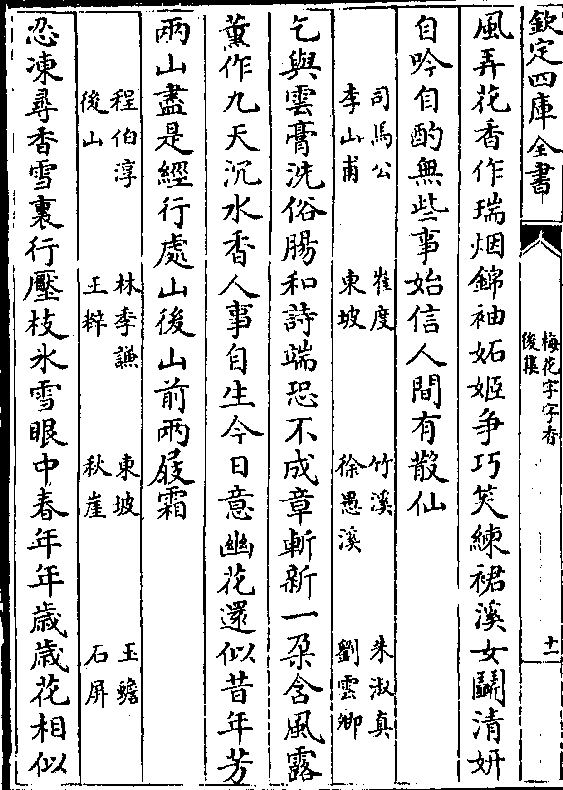 欽定四庫全書
梅花字字香
後集
十一
風弄花香作瑞烟錦袖妬姬爭巧笑練裙溪女鬬清妍
自吟自酌無些事始信人間有散仙
司馬公 崔度 竹溪 朱淑真
李山甫 東坡 徐愚溪 劉雲卿
乞與雲膏洗俗腸和詩端恐不成章斬新一朶含風露
薰作九天沉水香人事自生今日意幽花還似昔年芳
兩山盡是經行處山後山前兩屐霜
程伯淳 林李謙 東坡 玉蟾
後山 王梓 秋崖 石屏
忍凍尋香雪裏行壓枝氷雪眼中春年年歲歲花相似